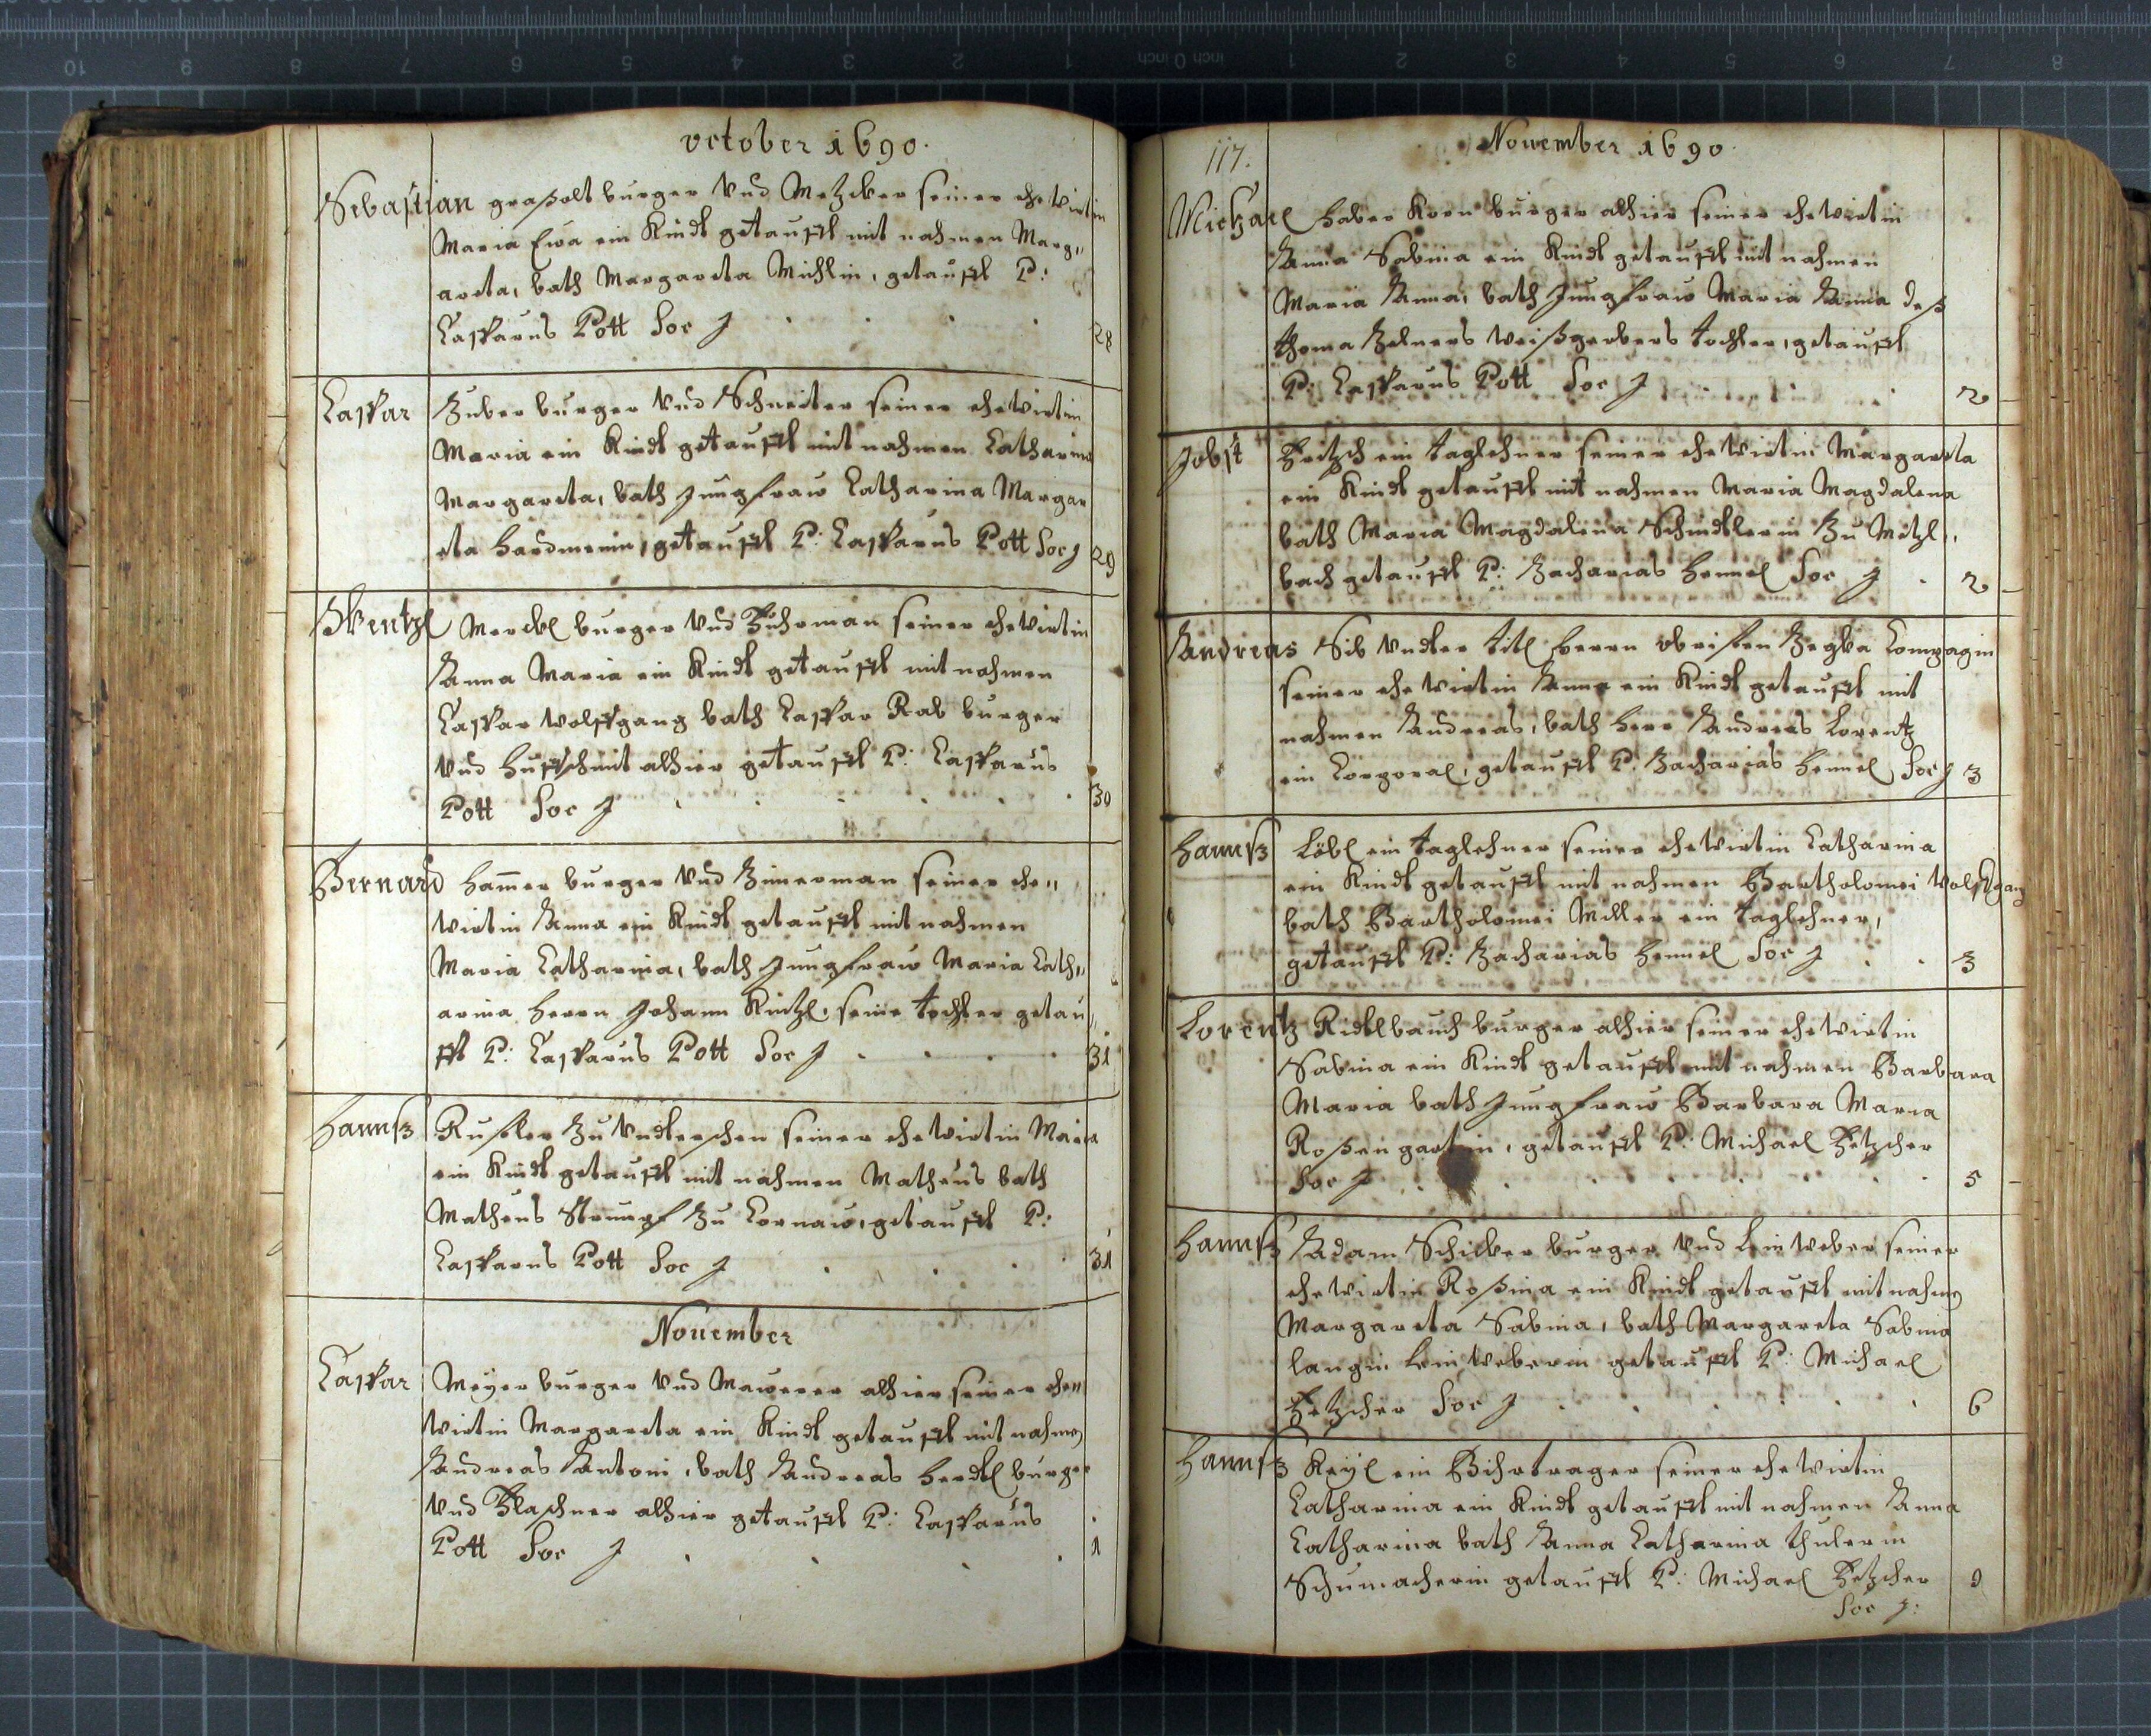 october 1690.
Sebastian graßolt burger Vnd Metzcker seiner ehewirtin
Maria Eva ein Kindt getaufft mit nahmen Marg„
areta, bath Margareta Michlin, getaufft P:
Casparus Pott Soc J 28
Caspar Zuber burger Vnd Schneiter seiner ehewirtin
Maria ein Kindt getaufft mit nahmen Catharina
Margareta, bath Jungfraw Catharina Margar
eta getaufft P: Casparus Pott Soc J 29
Wentzl Merckl burger Vnd Fuhrman seiner ehewirtin
Anna Maria ein Kindt getaufft mit nahmen
Caspar Wolffgang bath Caspar Rab burger
Vnd Huffschmit alhier getaufft P: Casparus
Pott Soc J 30
Bernard Ham̄er burger Vnd Zimerman seiner ehe„
wirtin Anna ein Kindt getaufft mit nahmen
Maria Catharina, bath Jungfraw Maria Cath„
arina Herrn Johann Kintzl, seine tochter getau„
fft P: Casparus Pott Soc J 31
Hannß Rußler Zu seiner ehewirtin Maria
ein Kindt getaufft mit nahmen Matheus bath
Matheus Strumpf Zu Cornaw, getaufft P:
Casparus Pott Soc J 31
November
Caspar Meyer burger Vnd Mawerer alhier seiner ehe„
wirtin Margareta ein Kindt getaufft mit nahmen
Andreas Antoni, bath Andreas Herdtl burger
Vnd Flaschner alhier getaufft P: Casparus
Pott Soc J 1
117.
November 1690.
Michael Haber Korn burger alhier seiner ehewirtin
Anna Sabina ein Kindt getaufft mit nahmen
Maria Anna, bath Jungfraw Maria Anna deß
thoma Zelners Weißgerbers tochter, getaufft
P: Casparus Pott Soc J 2
Jobst Fritzsch ein taglehner seiner ehewirtin Margareta
ein Kindt getaufft mit nahmen Maria Magdalena
bath Maria Magdalena Schindtlerin Zu Metzl„
bach getaufft P: Zacharias Hennel Soc J 2
Andreas Sib Vndter titl Herrn obristen Compagin
seiner ehewirtin Anna ein Kindt getaufft mit
nahmen Andreas, bath Herr Andreas Lorentz
ein Corporal, getaufft P: Zacharias Hennel Soc J 3
Hannß Löbl ein taglehner seiner ehewirtin Catharina
ein Kindt getaufft mit nahmen Bartholomei Wolffgang
bath Bartholomei Miller ein taglehner,
getaufft P: Zacharias Hennel Soc J 3
Lorentz Ridtlbauch burger alhier seiner ehewirtin
Sabina ein Kindt getaufft mit nahmen Barbara
Maria bath Jungfraw Barbara Maria
Roßengartin, getaufft P: Michael Fetzcher
Soc J 5
Hannß Adam Schicker burger Vnd Leinweber seiner
ehewirtin Roßina ein Kindt getaufft mit nahmen
Margareta Sabina, bath Margareta Sabina
langin Leinweberin getaufft P: Michael
Fetzcher Soc J 6
Hannß Keyl ein Bihrtrager seiner ehewirtin
Catharina ein Kindt getaufft mit nahmen Anna
Catharina bath Anna Catharina thulerin
Schumacherin getaufft P: Michael Fetzcher 9
Soc J: